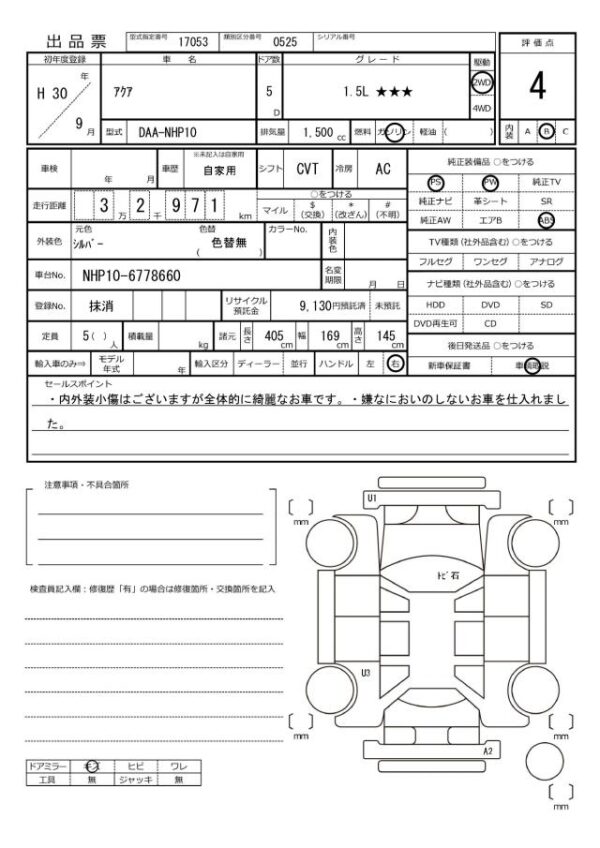 出品票 型式指定番号 17053 類別区分番号 0525 シリアル番号
評価点
初年度登録 車名 ドア数 グレード 駆動
H 30 年 9 月 ｱｸｱ 5 D 1.5L ★★★ 2WD 4WD
4
型式 DAA-NHP10 排気量 1,500 cc 燃料 ガソリン 軽油 ( )
内装 A B C
車検 年 月 車歴 ※未記入は自家用 自家用 シフト CVT 冷房 AC
純正装備品 ○をつける
PS PW 純正TV
走行距離 3 万 2 千 9 7 1 km ○をつける
マイル $(交換) *(改ざん) #(不明)
純正ナビ 革シート SR
純正AW エアB ABS
外装色 元色 ｼﾙﾊﾞｰ 色替 色替無 ( ) カラーNo. 内装色
TV種類 (社外品含む) ○をつける
フルセグ ワンセグ アナログ
車台No. NHP10-6778660 名変期限 月 日
ナビ種類 (社外品含む) ○をつける
登録No. 抹消 リサイクル預託金 9,130円預託済 未預託
HDD DVD SD
DVD再生可 CD
定員 5( ) 人 積載量 kg 諸元 長さ 405 cm 幅 169 cm 高さ 145 cm
後日発送品 ○をつける
輸入車のみ⇒ モデル年式 年 輸入区分 ディーラー 並行 ハンドル 左 右
新車保証書
セールスポイント
・内外装小傷はございますが全体的に綺麗なお車です。・嫌なにおいのしないお車を仕入れまし
た。
注意事項・不具合箇所
U1
mm mm
検査員記入欄：修復歴「有」の場合は修復箇所・交換箇所を記入
ﾄﾋﾞ石
U3
mm mm
A2
ドアミラー キズ ヒビ ワレ
工具 無 ジャッキ 無
mm